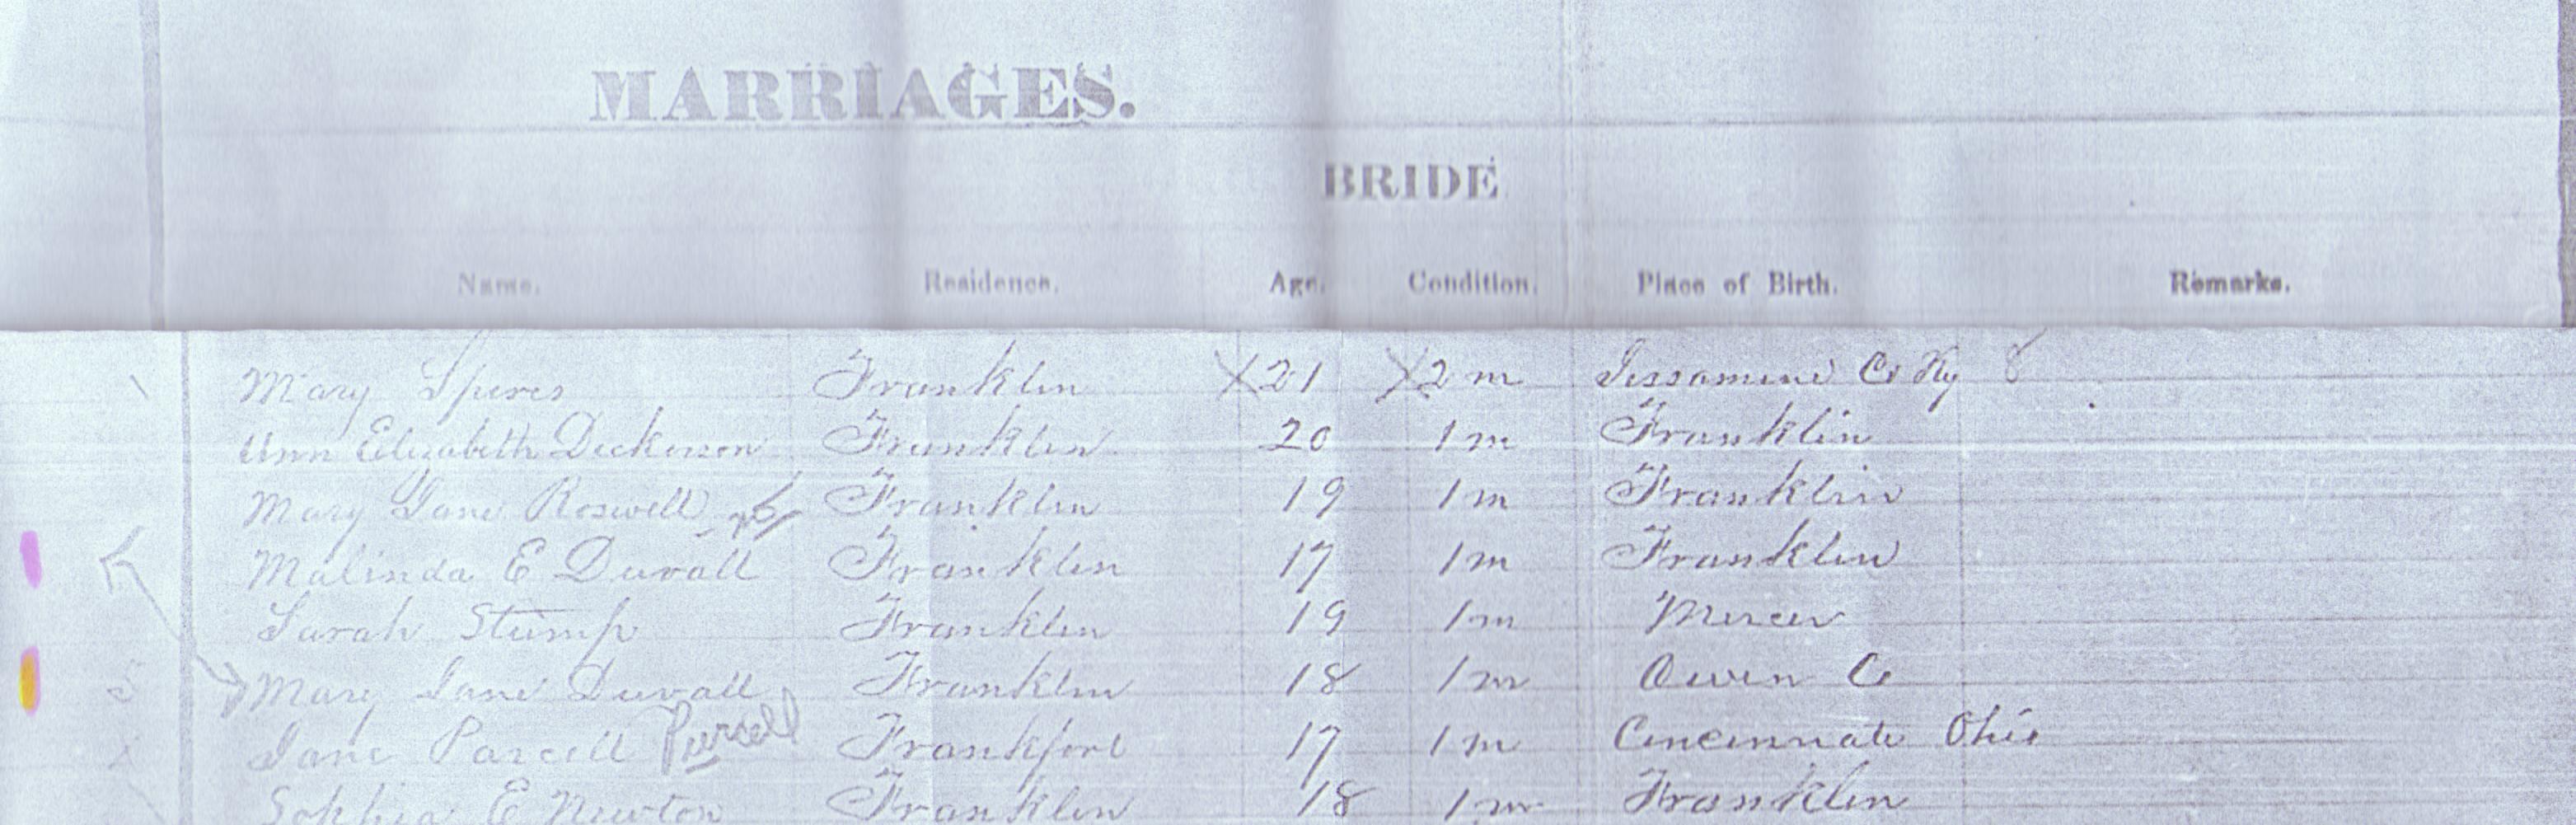 MARRIAGES.
BRIDE
Name. Residence. Age. Condition. Place of Birth. Remarks.
Mary Spires Franklin X 21 X 2 m Jessamine Co Ky 8
Ann Elizabeth Dickerson Franklin 20 1 m Franklin
Mary Jane Roswell Franklin 19 1 m Franklin
Malinda E Duvall Franklin 17 1 m Franklin
Sarah Stump Franklin 19 1 m Mercer
5 Mary Jane Duvall Franklin 18 1 m Owen Co
X Jane Parcell Purcell Frankfort 17 1 m Cincinnati Ohio
Sophia E Newton Franklin 18 1 m Franklin